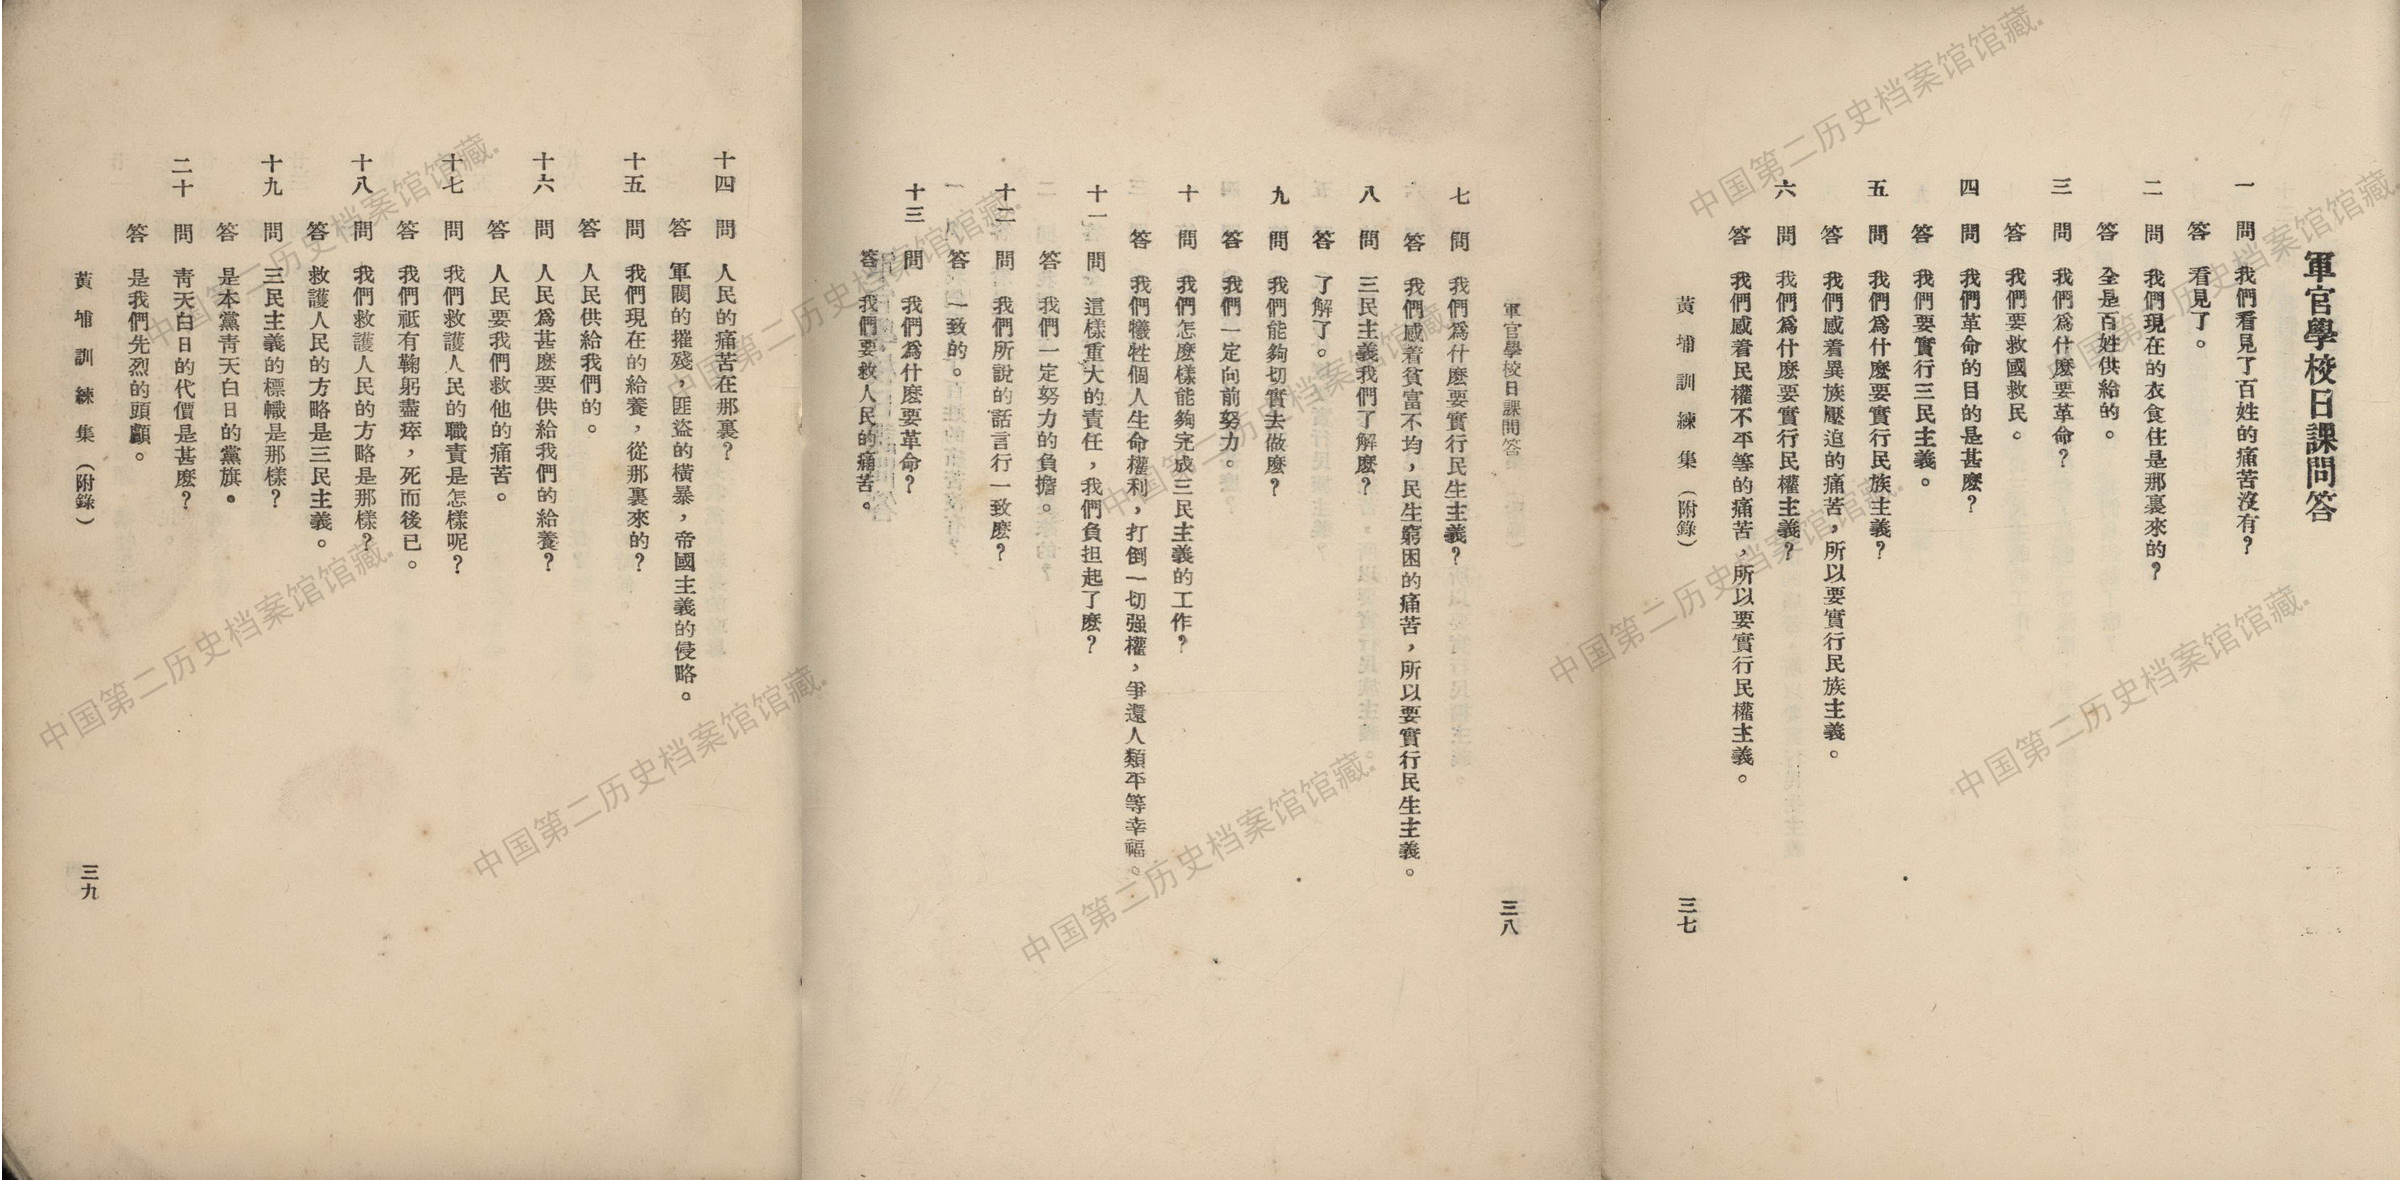 軍官學校日課問答
一 問 我們看見了百姓的痛苦沒有？
答 看見了。
二 問 我們現在的衣食住是那裏來的？
答 全是百姓供給的。
三 問 我們爲什麽要革命？
答 我們要救國救民。
四 問 我們革命的目的是甚麽？
答 我們要實行三民主義。
五 問 我們爲什麽要實行民族主義？
答 我們感着異族壓迫的痛苦，所以要實行民族主義。
六 問 我們爲什麽要實行民權主義？
答 我們感着民權不平等的痛苦，所以要實行民權主義。
黃埔訓練集（附錄）
三七
軍官學校日課問答
三八
七 問 我們爲什麽要實行民生主義？
答 我們感着貧富不均，民生窮困的痛苦，所以要實行民生主義。
八 問 三民主義我們了解麽？
答 了解了。
九 問 我們能夠切實去做麽？
答 我們一定向前努力。
十 問 我們怎麽樣能夠完成三民主義的工作？
答 我們犧牲個人生命權利，打倒一切强權，爭還人類平等幸福。
十一 問 這樣重大的責任，我們負担起了麽？
答 我們一定努力的負擔。
十二 問 我們所說的話言行一致麽？
答 一致的。
十三 問 我們爲什麽要革命？
答 我們要救人民的痛苦。
十四 問 人民的痛苦在那裏？
答 軍閥的摧殘，匪盜的橫暴，帝國主義的侵略。
十五 問 我們現在的給養，從那裏來的？
答 人民供給我們的。
十六 問 人民爲甚麽要供給我們的給養？
答 人民要我們救他的痛苦。
十七 問 我們救護人民的職責是怎樣呢？
答 我們祗有鞠躬盡瘁，死而後已。
十八 問 我們救護人民的方略是那樣？
答 救護人民的方略是三民主義。
十九 問 三民主義的標幟是那樣？
答 是本黨靑天白日的黨旗。
二十 問 靑天白日的代價是甚麽？
答 是我們先烈的頭顱。
黃埔訓練集（附錄）
三九
中国第二历史档案馆馆藏.
中国第二历史档案馆馆藏.
中国第二历史档案馆馆藏.
中国第二历史档案馆馆藏.
中国第二历史档案馆馆藏.
中国第二历史档案馆馆藏.
中国第二历史档案馆馆藏.
中国第二历史档案馆馆藏.
中国第二历史档案馆馆藏.
中国第二历史档案馆馆藏.